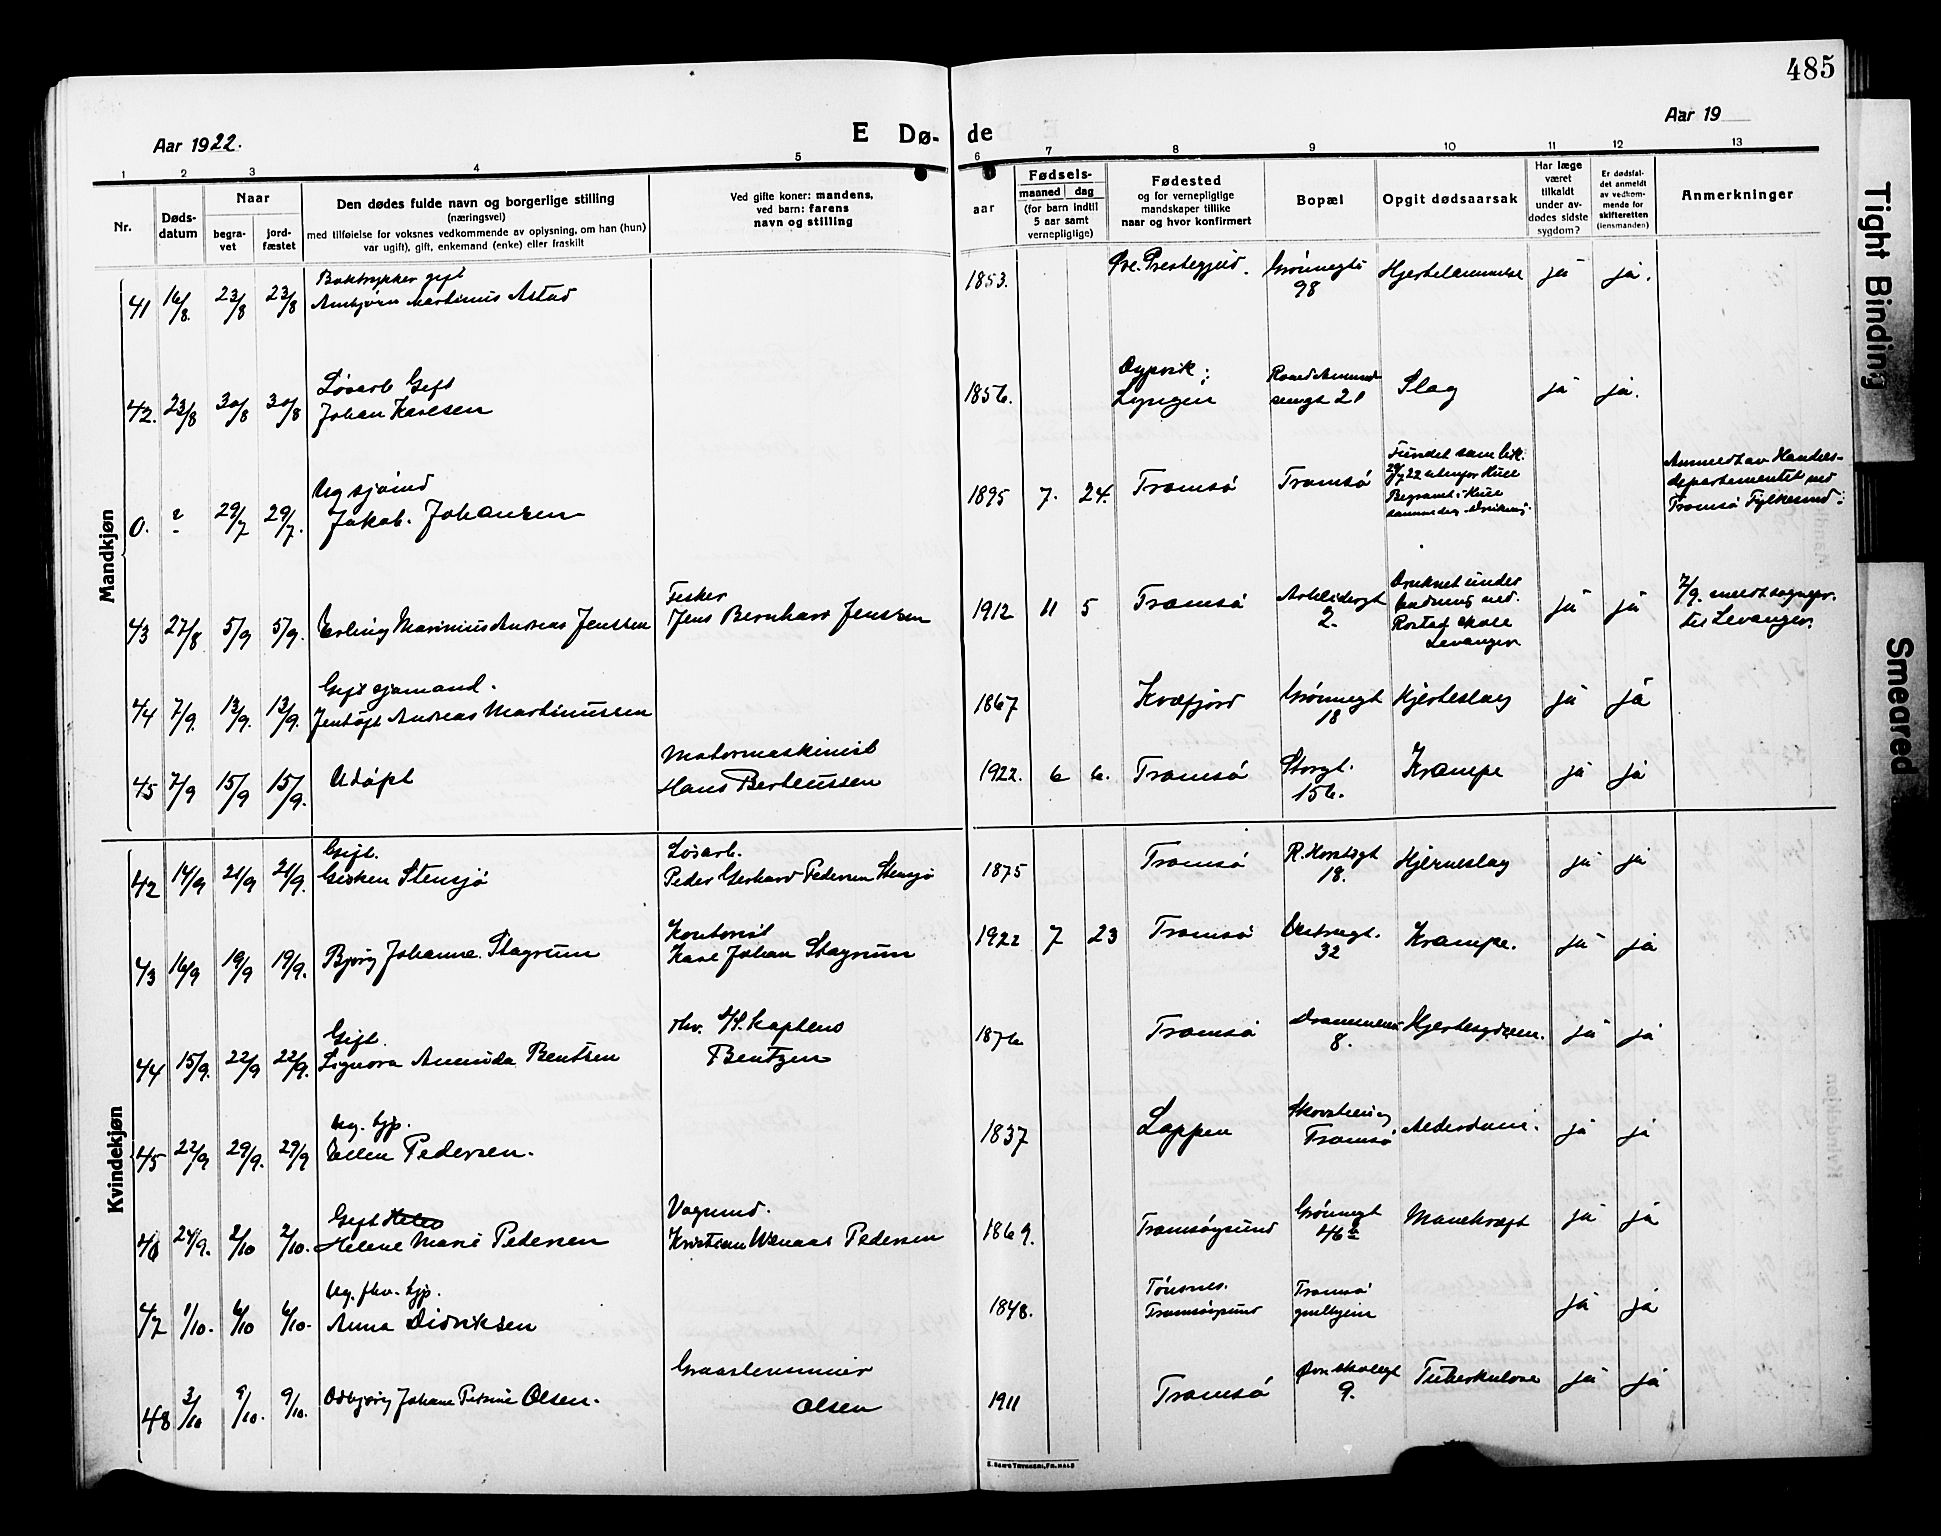 485
Aar 1922.
E Dø-
de
Aar 19
1 2 3 4 5 6 7 8 9 10 11 12 13
Nr.
Døds-
datum
Naar
begra-
vet
jord-
fæstet
Den dødes fulde navn og borgerlige stilling
(næringsvei)
med tilføielse for voksnes vedkommende av oplysning, om han (hun)
var ugift), gift, enkemand (enke) eller fraskilt
Ved gifte koner: mandens,
ved barn: farens
navn og stilling
Fødsels-
aar
maaned dag
(for barn indtil
5 aar samt
vernepligtige)
Fødested
og for vernepligtige
mandskaper tillike
naar og hvor konfirmert
Bopæl
Opgit dødsaarsak
Har læge
været
tilkaldt
under av-
dødes sidste
sygdom?
Er dødsfal-
det anmeldt
av vedkom-
mende for
skifteretten
(lensmanden)
Anmerkninger
Mandkjøn
Boktrykker gift
41 16/8. 23/8 23/8 Arnbjørn Martinius Astad 1853. Grønnegt 98 ja ja.
Løsarb Gift
42. 23/8 30/8 30/8 Johan Karlsen 1856. Lyngen 21 Slag ja ja.
Ug sjømd
0. ? 29/7 29/7. Jakob. Johansen 1895 7. 24. Tromsø Tromsø
Fundet som lik.
Anmeldt av Handels-
departementet ved
Tromsø Fylkesmd.
Fisker
43 27/8 5/9 5/9. Erling Marinius Andreas Jenssen Jens Bernhard Jenssen 1912 11 5 Tromsø 2. ja ja
Druknet under
badning ved.
Rostad skole
Levanger
7/9. meldt sognepr.
til Levanger.
Gift sjømand.
44 7/9. 13/9. 13/9. Jentoft Andreas Martinussen 1867 Kvæfjord Grønnegt 18 Hjerteslag ja ja
Motormaskinist
45 7/9 15/9 15/9. Udøpt Hans Berthussen 1922. 6 6. Tromsø Storgt. 156. Krampe ja ja
Kvindekjøn
Gift. Løsarb.
42 14/9 21/9 21/9. Stensjø Peder Gerhard Pedersen Stensjø 1875 Tromsø 18. Hjerneslag ja ja
Kontorist
43 16/9 19/9 19/9. Bjørg Johanne Stagrum Karl Johan Stagrum 1922 7 23 Tromsø Vestregt. 32 Krampe. ja ja
Gift.
44 15/9. 22/9 22/9. Signora Amunda Bentsen Bentzen 1876 Tromsø 8. ja ja
Ug. tjp.
45 22/9 29/9. 29/9 Ellen Pedersen. 1837 Loppen Tromsø Alderdom. ja ja
Gift Vognmd.
46 24/9. 2/10 2/10. Helene Marie Pedersen Kristian Pedersen 1869. Tromsøysund Grønnegt 46 a ja ja
Ug. fhv. tjp.
47 1/10. 6/10 6/10. Anna Didriksen 1848. Tønsnes. Tromsøysund Tromsø gmlhjem ja ja
48 3/10 9/10. 9/10. Odbjørg Johane Petrine Olsen. Olsen 1911 Tromsø 9. Tuberkulose ja ja
E. SEM'S TRYKKERI, FR.HALD
Tight Binding
Smeared